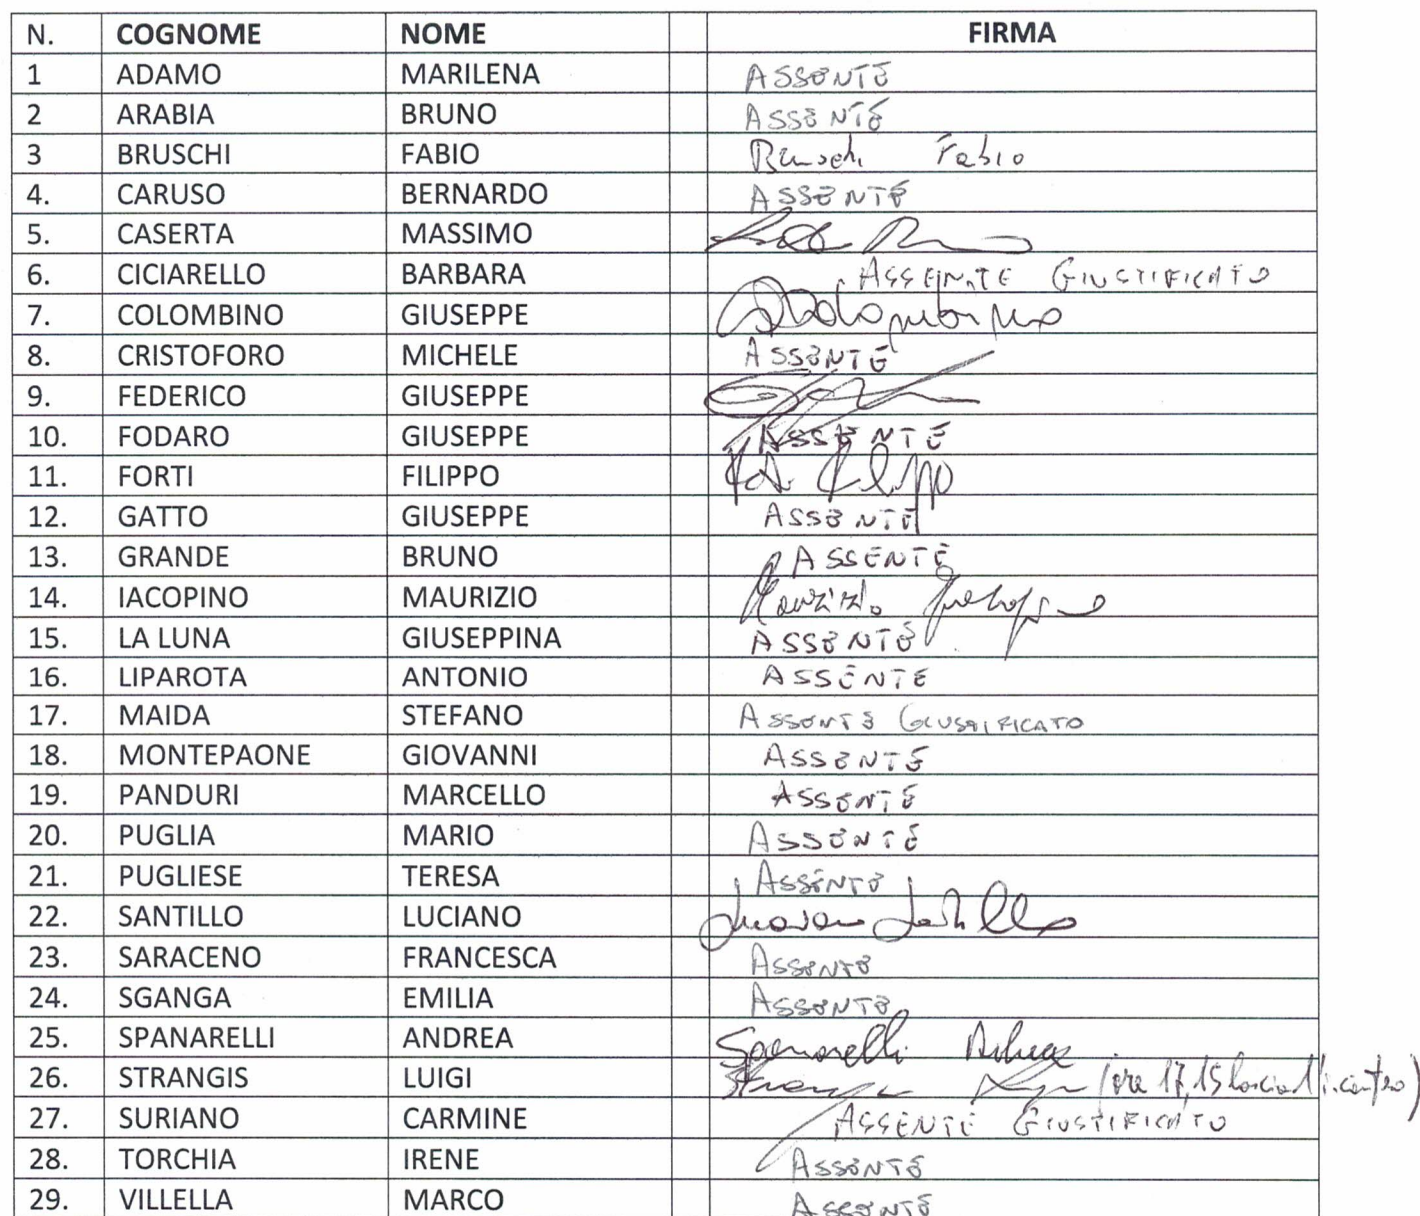 N. COGNOME NOME FIRMA
1 ADAMO MARILENA ASSENTE
2 ARABIA BRUNO ASSENTE
3 BRUSCHI FABIO Bruschi Fabio
4. CARUSO BERNARDO ASSENTE
5. CASERTA MASSIMO
6. CICIARELLO BARBARA ASSENTE GIUSTIFICATO
7. COLOMBINO GIUSEPPE
8. CRISTOFORO MICHELE ASSENTE
9. FEDERICO GIUSEPPE
10. FODARO GIUSEPPE ASSENTE
11. FORTI FILIPPO Filippo
12. GATTO GIUSEPPE ASSENTE
13. GRANDE BRUNO ASSENTE
14. IACOPINO MAURIZIO Maurizio Iacopino
15. LA LUNA GIUSEPPINA ASSENTE
16. LIPAROTA ANTONIO ASSENTE
17. MAIDA STEFANO ASSENTE GIUSTIFICATO
18. MONTEPAONE GIOVANNI ASSENTE
19. PANDURI MARCELLO ASSENTE
20. PUGLIA MARIO ASSENTE
21. PUGLIESE TERESA ASSENTE
22. SANTILLO LUCIANO Luciano Santillo
23. SARACENO FRANCESCA ASSENTE
24. SGANGA EMILIA ASSENTE
25. SPANARELLI ANDREA Spanarelli Andrea
26. STRANGIS LUIGI (ore 17,15 lascia l'incontro)
27. SURIANO CARMINE ASSENTE GIUSTIFICATO
28. TORCHIA IRENE ASSENTE
29. VILLELLA MARCO ASSENTE